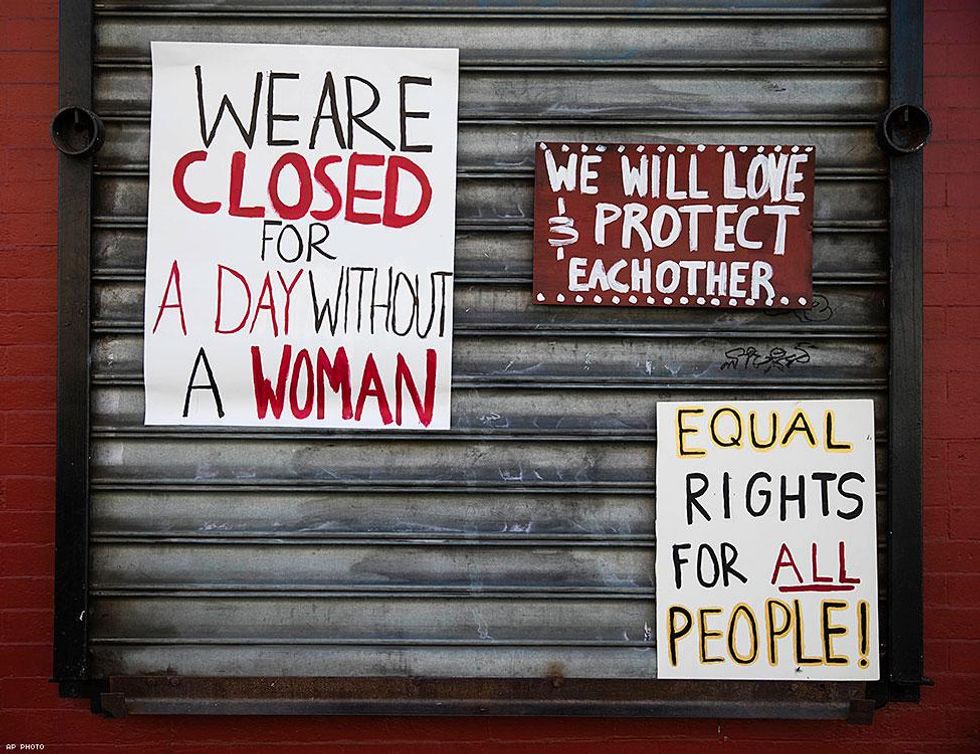 WE ARE
CLOSED
FOR
A DAY WITHOUT
A WOMAN
WE WILL LOVE
& PROTECT
EACHOTHER
EQUAL
RIGHTS
FOR ALL
PEOPLE!
AP PHOTO